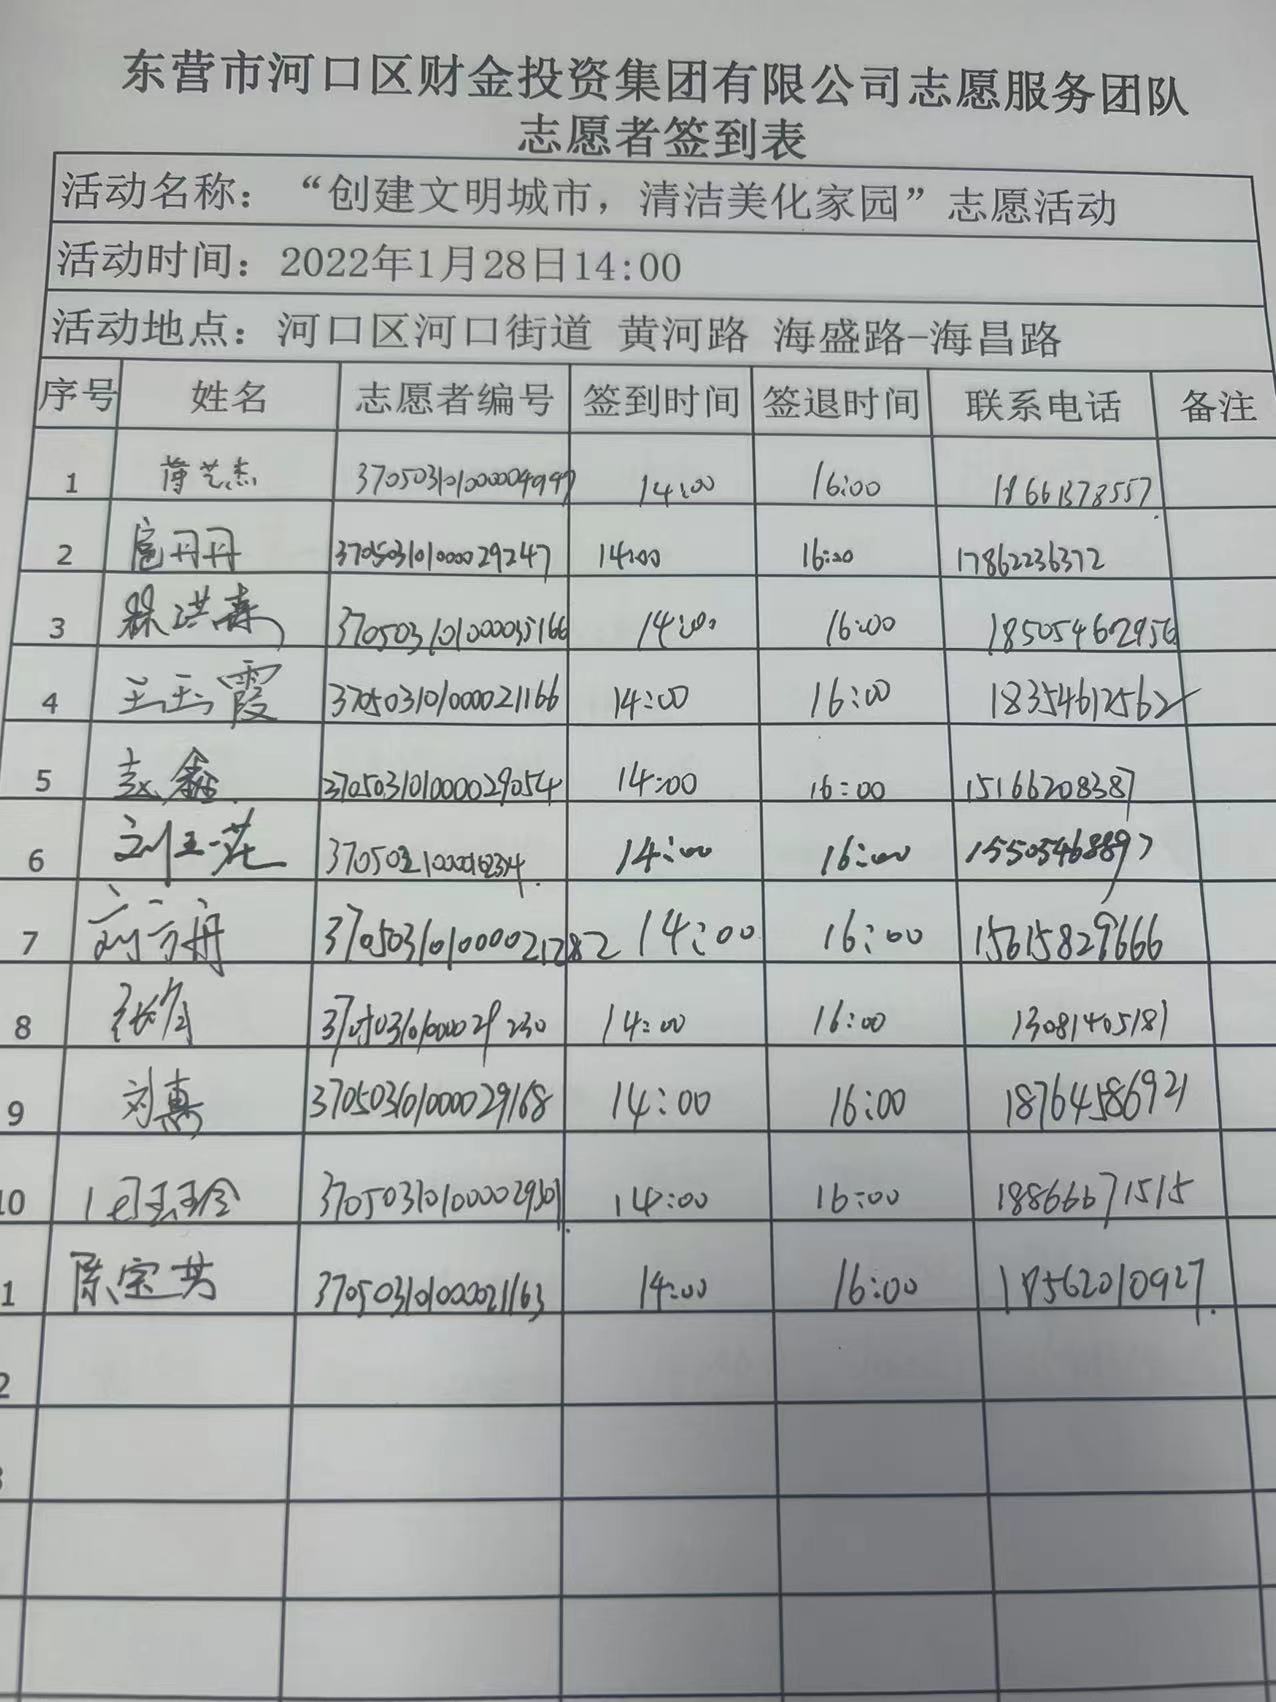 东营市河口区财金投资集团有限公司志愿服务团队
志愿者签到表
活动名称：“创建文明城市，清洁美化家园”志愿活动
活动时间：2022年1月28日14:00
活动地点：河口区河口街道 黄河路 海盛路-海昌路
序号 姓名 志愿者编号 签到时间 签退时间 联系电话 备注
1 14:00 16:00 18661378557
2 扈丹丹 370503101000029247 14:00 16:00 17862236372
3 370503101000035166 14:00 16:00 18505462956
4 王玉霞 370503101000021166 14:00 16:00 18354612562
5 赵鑫 370503101000029054 14:00 16:00 15166208387
6 14:00 16:00 15505468897
7 刘方舟 370503101000021282 14:00 16:00 15615829666
8 370503101000029230 14:00 16:00 13081405181
9 刘惠 370503101000029168 14:00 16:00 18764586921
10 370503101000029301 14:00 16:00 18866671515
1 陈宝芬 370503101000021163 14:00 16:00 17562010927
2